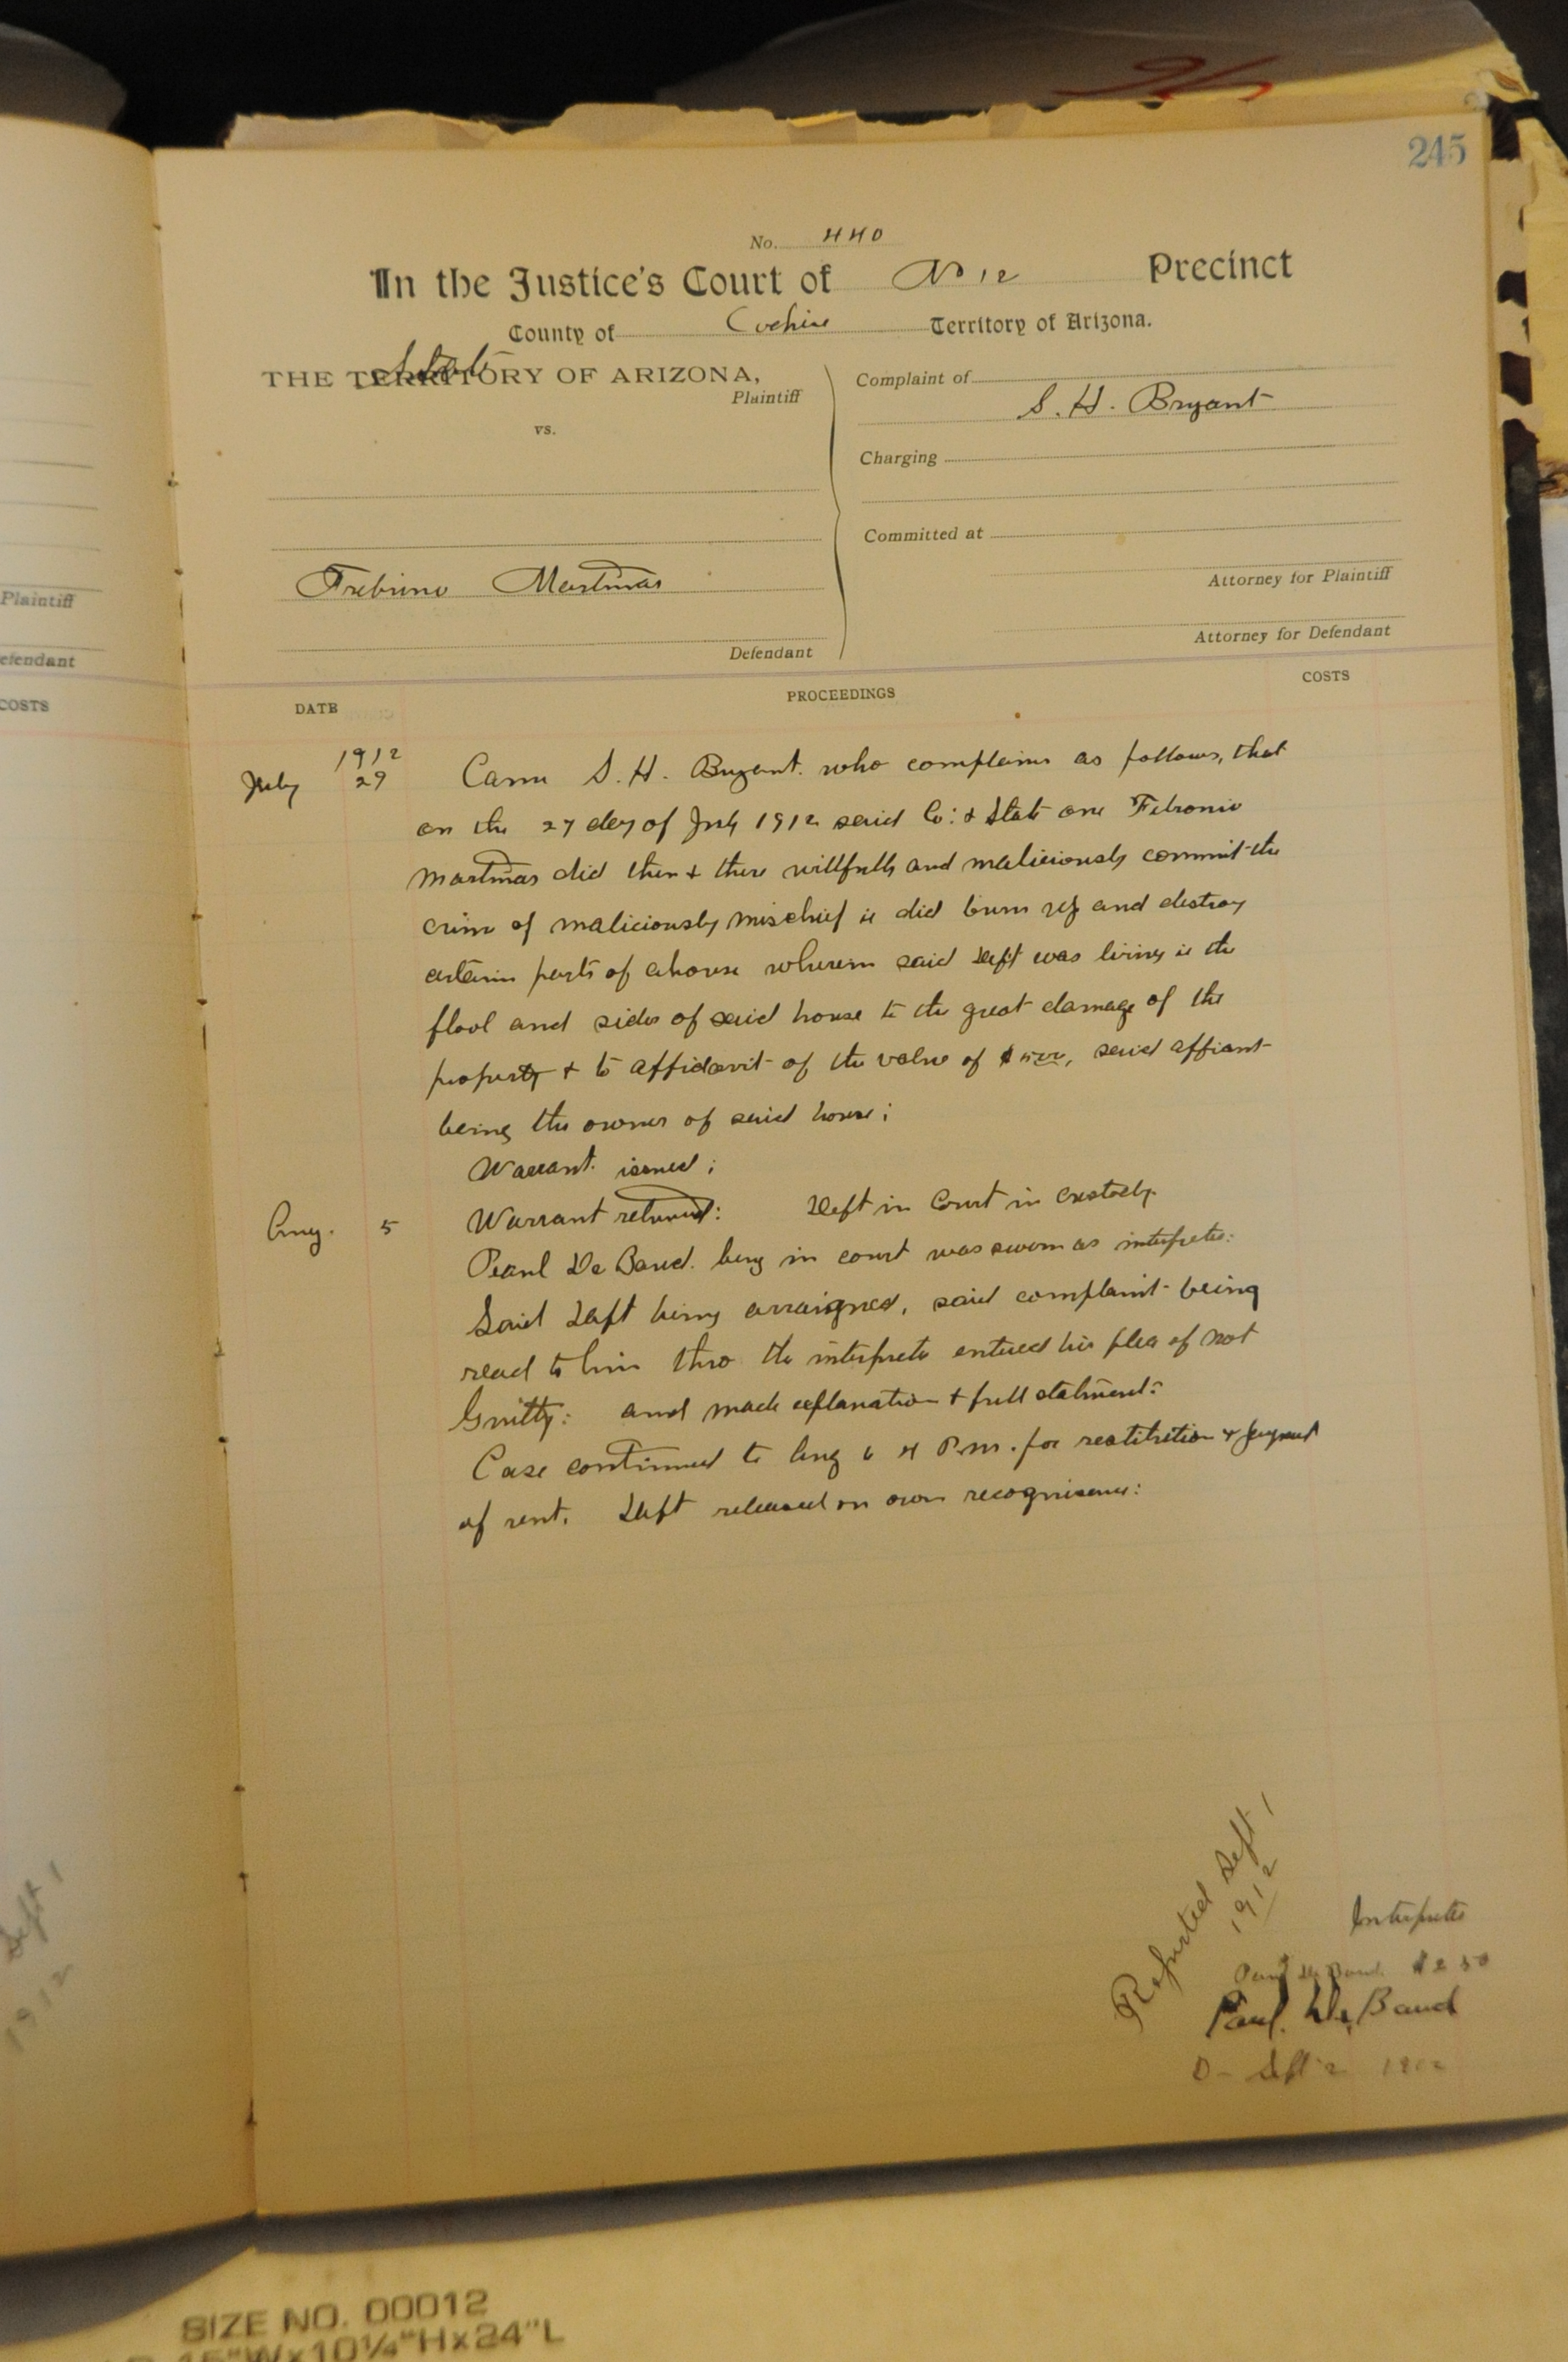 245
No. 440
In the Justice's Court of No 12 Precinct
County of Cochise Territory of Arizona.
State
THE TERRITORY OF ARIZONA,
Plaintiff
vs.
Complaint of
S. H. Bryant
Charging
Committed at
Attorney for Plaintiff
Attorney for Defendant
Martinas
Defendant
DATE PROCEEDINGS COSTS
1912
July 29 Came S. H. Bryant. who complains as follows, that
on the 27 day of July 1912 said Co: & State one Febronio
Martinas did then & there willfully and maliciously commit the
crime of maliciously mischief ie did burn up and destroy
certain parts of a house wherein said Deft was living ie the
flool and sides of said house to the great damage of the
property & to affidavit of the value of said affiant
being the owner of said house;
Warrant issued;
Aug. 5 Warrant returned: Deft in Court in custody.
Pearl De Baud. being in court was sworn as interpreter:
Said Deft being arraigned, said complaint being
read to him thro the interpreter entered his plea of not
Guilty: and made explanation & full statment:
Case continued to Aug 6 4 P.m. for restitution & payment
of rent. Deft released on own recognisance:
Reported Sept 1
1912
Interpreter
Paul De Baud. $2 50
Paul. De. Baud
Sept 2 1912
Plaintiff
efendant
COSTS
Sept 1
1912
SIZE NO. 00012
15"Wx10¼"Hx24"L